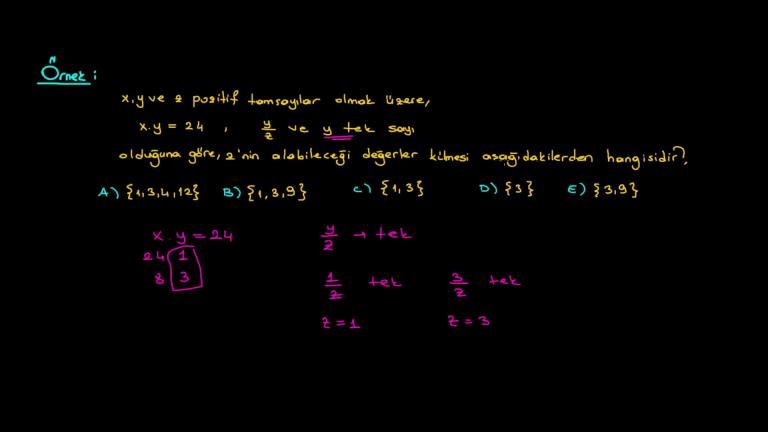 Örnek :
x,y ve z pozitif tamsayılar olmak üzere,
x.y = 24 , y/z ve y tek sayı
olduğuna göre, z'nin alabileceği değerler kümesi aşağıdakilerden hangisidir?
A) {1,3,4,12} B) {1,3,9} C) {1,3} D) {3} E) {3,9}
x.y = 24 y/z → tek
24 1
8 3
1/z tek 3/z tek
z = 1 z = 3